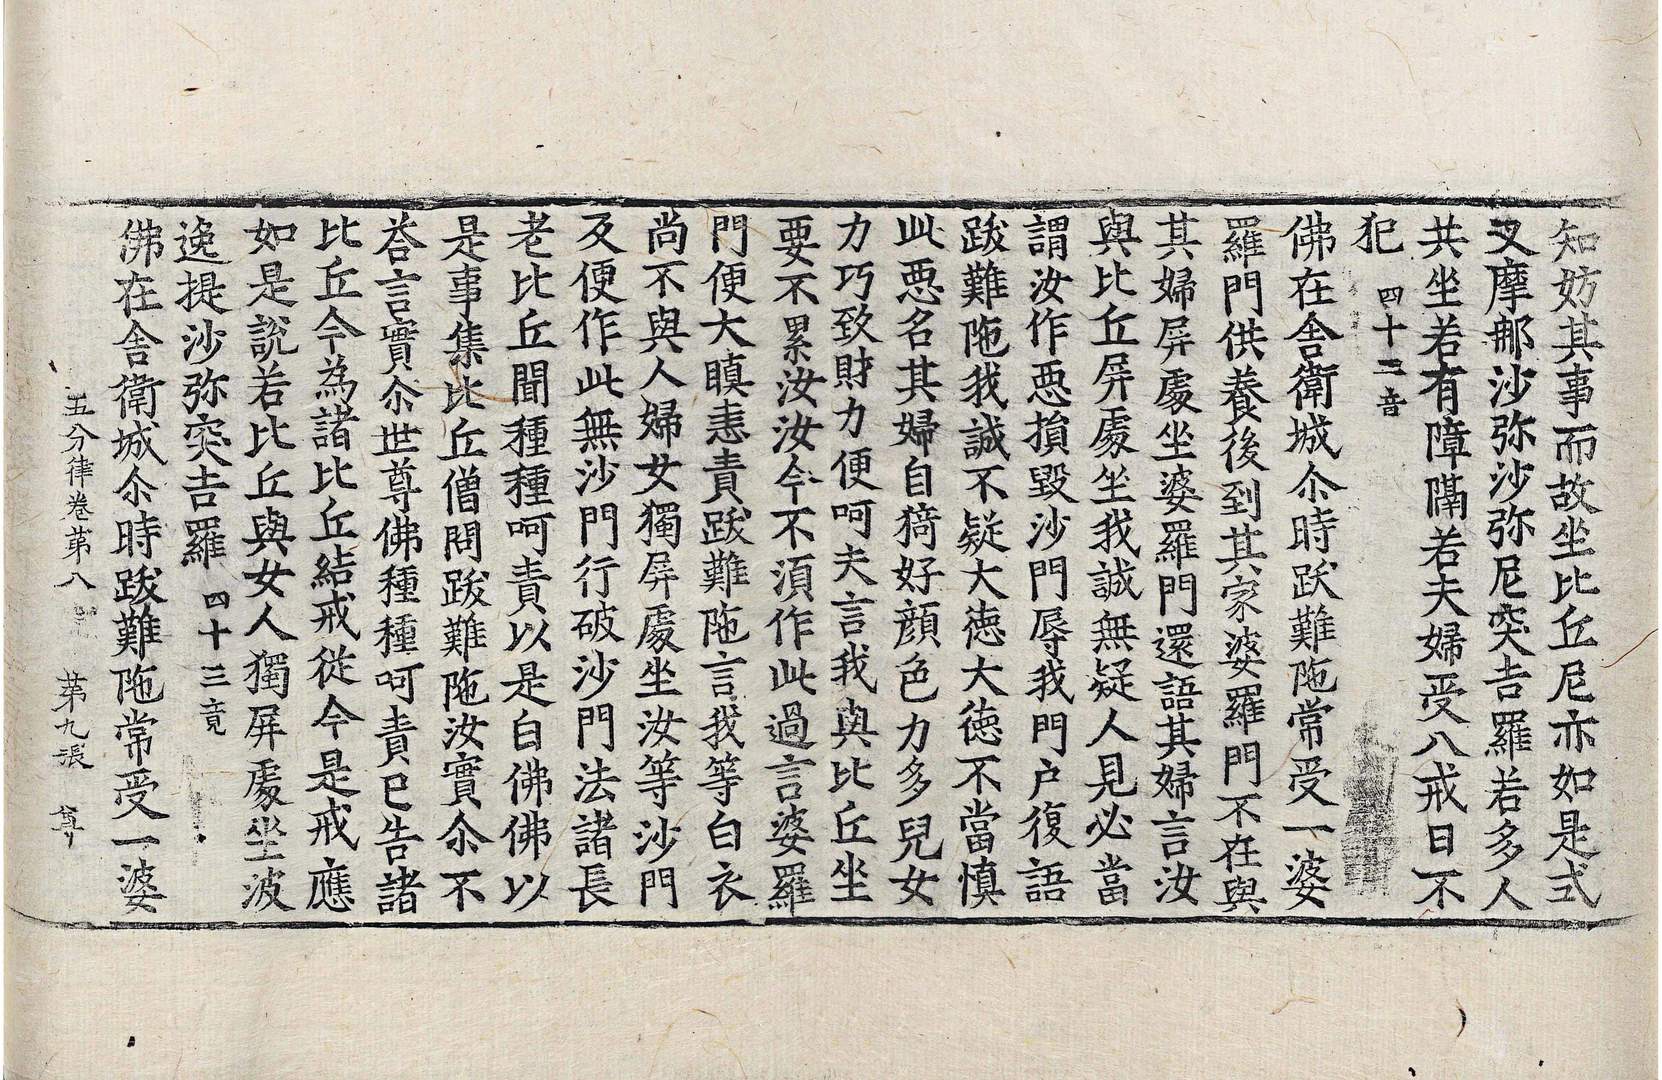 知妨其事而故坐比丘尼亦如是式
叉摩那沙弥沙弥尼突吉羅若多人
共坐若有障隔若夫婦受八戒日不
犯 四十二竟
佛在舎衛城尒時跋難陁常受一婆
羅門供養後到其家婆羅門不在與
其婦屏處坐婆羅門還語其婦言汝
與比丘屏處坐我誠無疑人見必當
謂汝作惡損毀沙門辱我門户復語
跋難陁我誠不疑大德大德不當慎
此惡名其婦自猗好顔色力多兒女
力巧致財力便呵夫言我與比丘坐
要不累汝汝今不湏作此過言婆羅
門便大瞋恚責跋難陁言我等白衣
尚不與人婦女獨屏處坐汝等沙門
及便作此無沙門行破沙門法諸長
老比丘聞種種呵責以是白佛佛以
是事集比丘僧問跋難陁汝實尒不
荅言實尒世尊佛種種呵責已告諸
比丘今為諸比丘結戒從今是戒應
如是說若比丘與女人獨屏處坐波
逸提沙弥突吉羅 四十三竟
佛在舎衛城尒時跋難陁常受一婆
五分律卷苐八 苐九張 尊